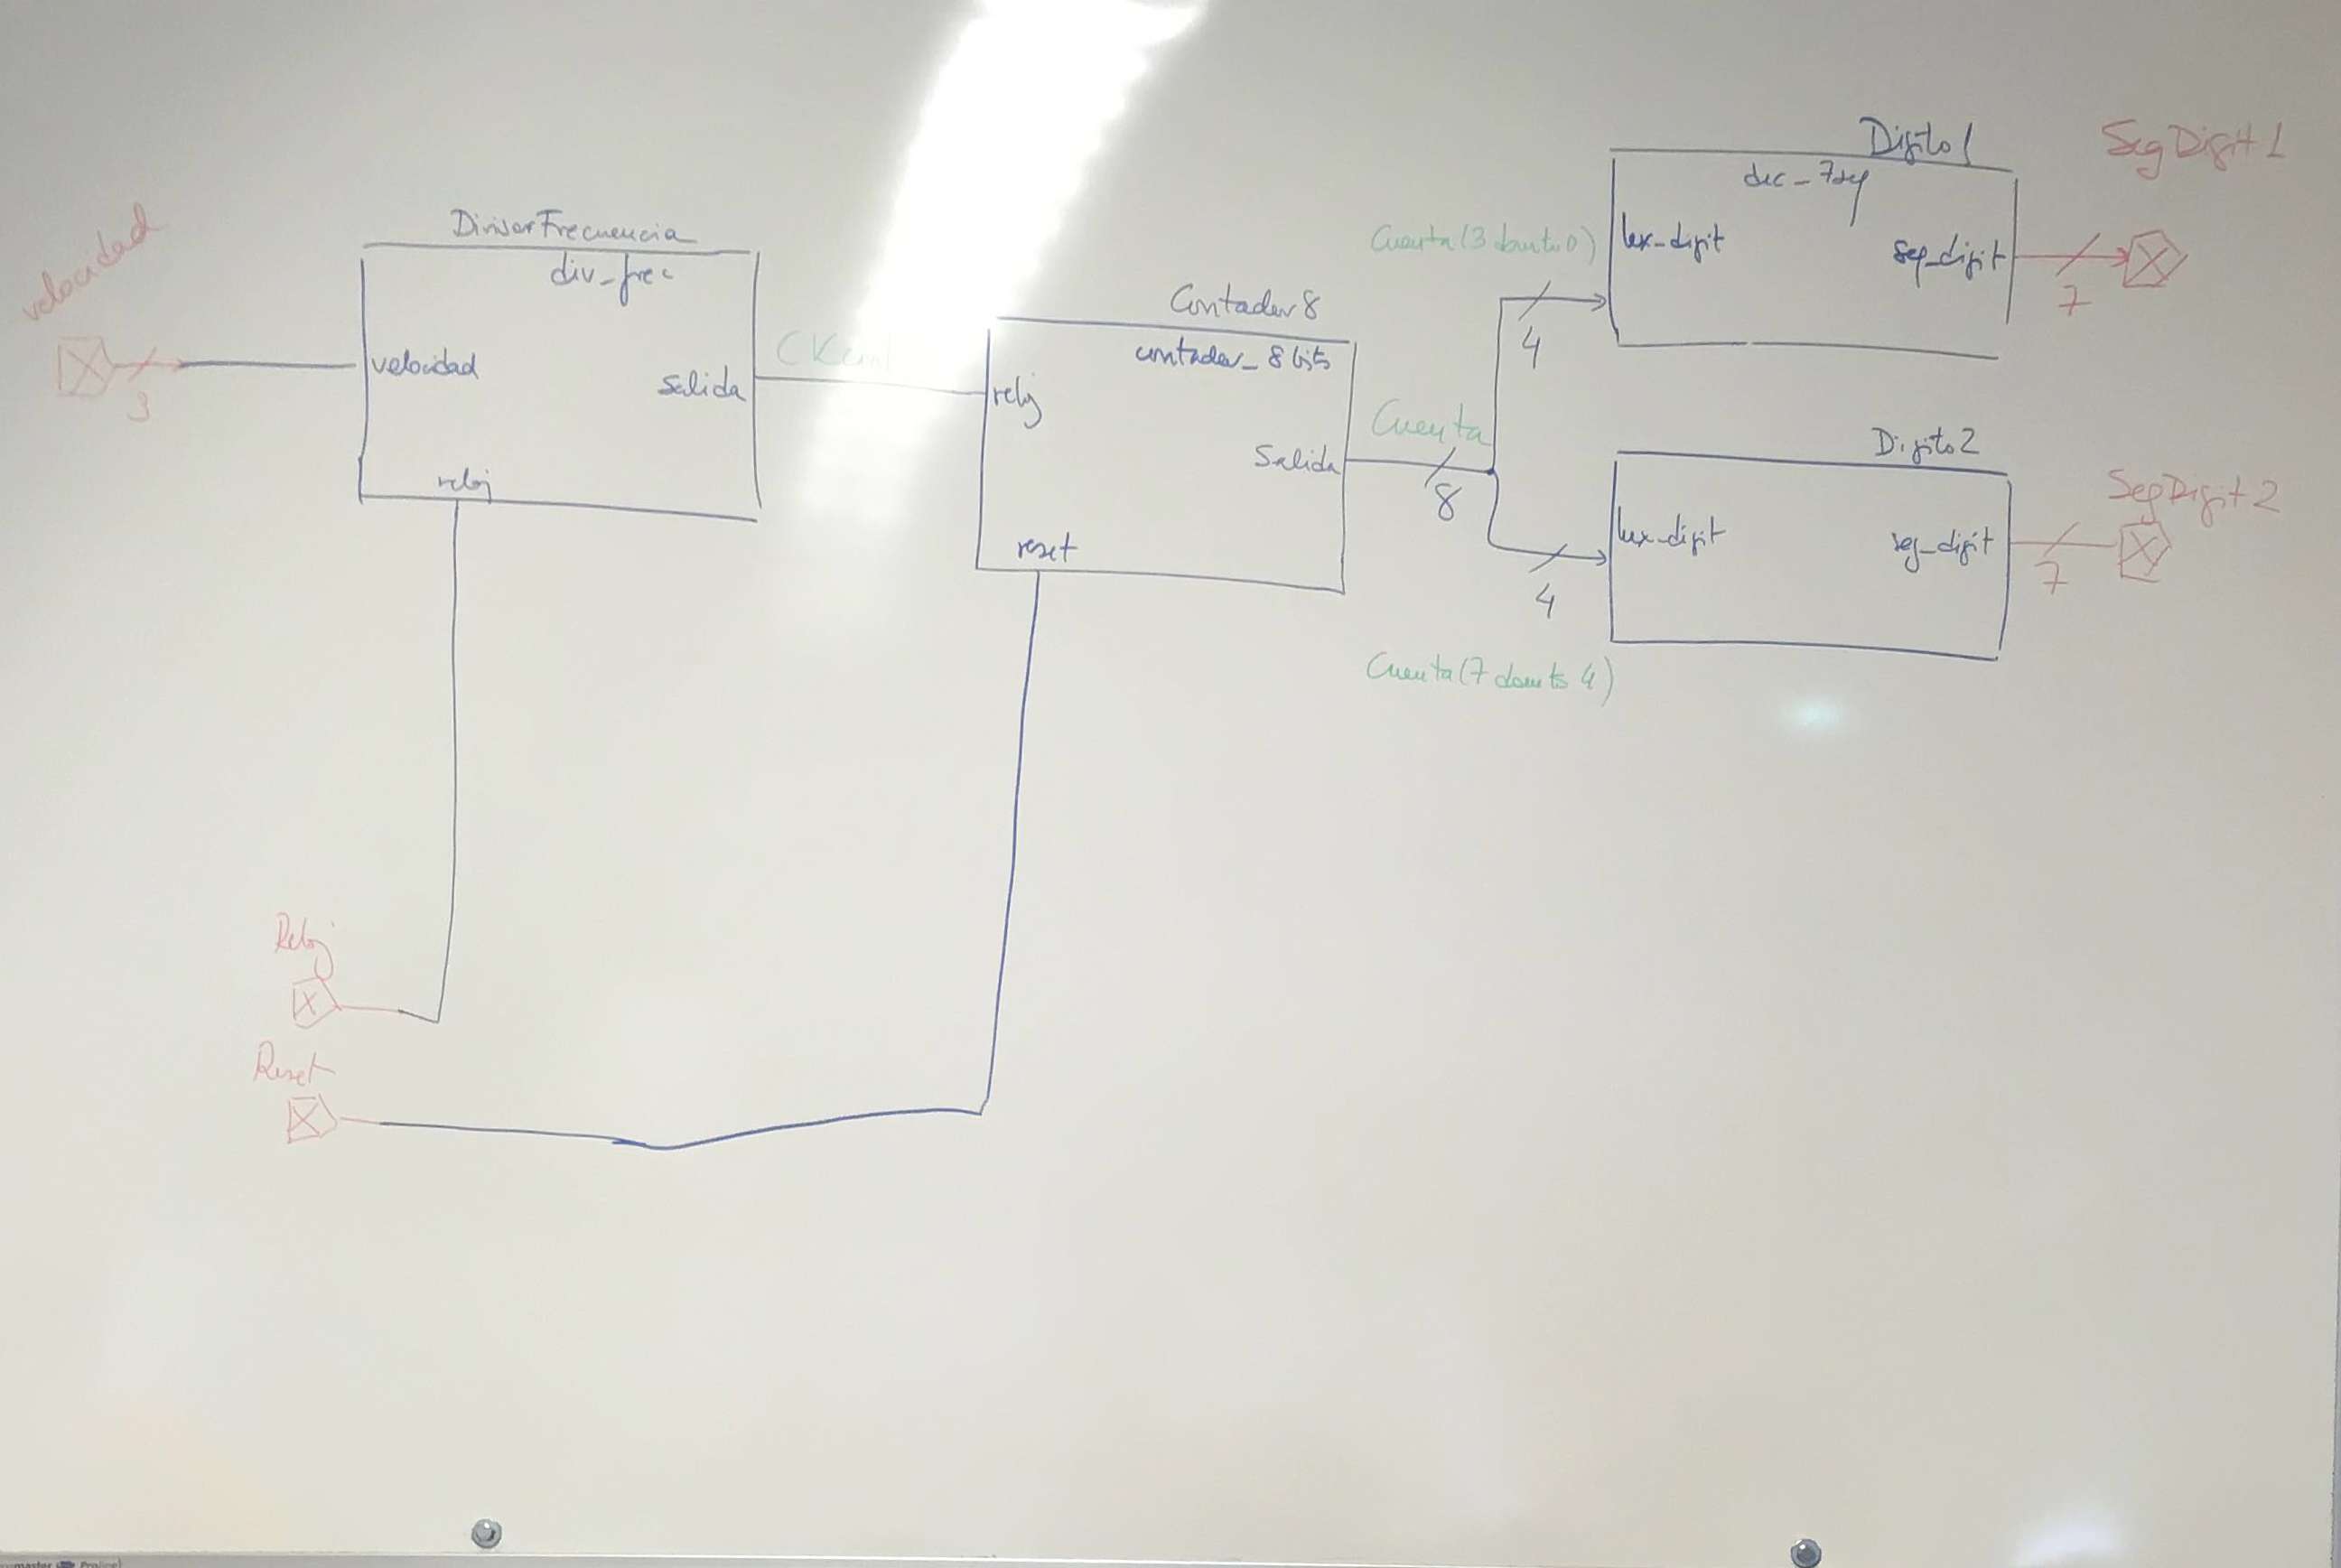 velocidad
3
DivisorFrecuencia
div_frec
velocidad
Salida
reloj
Contador8
contador_8bits
reloj
Salida
reset
Cuenta
8
Cuenta(3 downto 0)
4
Digito1
dec_7seg
hex_digit
seg_digit
7
Seg Digit 1
4
Cuenta(7 downto 4)
Digito2
hex_digit
seg_digit
7
Seg Digit 2
Reloj
Reset